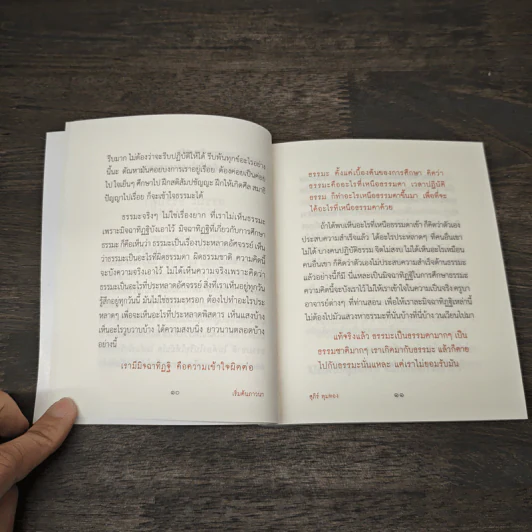 รีบมาก ไม่ต้องว่าจะรีบปฏิบัติให้ได้ รีบพ้นทุกข์อะไรอย่าง
นี้นะ ตัณหามันคอยบงการเราอยู่เรื่อย ต้องค่อยเป็นค่อย
ไป ใจเย็นๆ ศึกษาไป ฝึกสติสัมปชัญญะ ฝึกให้เกิดศีล สมาธิ
ปัญญาไปเรื่อย ก็จะเข้าใจธรรมะได้
ธรรมะจริงๆ ไม่ใช่เรื่องยาก ที่เราไม่เห็นธรรมะ
เพราะมิจฉาทิฏฐิเอาไว้ มิจฉาทิฏฐิที่เกี่ยวกับการศึกษา
ธรรมะ ก็คือเห็นว่า ธรรมะเป็นเรื่องประหลาดอัศจรรย์ เห็น
ว่าธรรมะเป็นอะไรที่ผิดธรรมดา ผิดธรรมชาติ ความคิดนี้
จะบังความจริงเอาไว้ ไม่ได้เห็นความจริงเพราะคิดว่า
ธรรมะเป็นอะไรที่ประหลาดอัศจรรย์ สิ่งที่เราเห็นอยู่ทุกวัน
รู้สึกอยู่ทุกวันนี้ มันไม่ใช่ธรรมะหรอก ต้องไปทำอะไรประ
หลาดๆ เพื่อจะเห็นอะไรที่ประหลาดพิสดาร เห็นแสงบ้าง
เห็นอะไรวูบวาบบ้าง ได้ความสงบนิ่ง ยาวนานตลอดบ้าง
อย่างนี้
เรามีมิจฉาทิฏฐิ คือความเข้าใจผิดต่อ
๑๐ เริ่มต้นภาวนา
ธรรมะ ตั้งแต่เบื้องต้นของการศึกษา คิดว่า
ธรรมะคืออะไรที่เหนือธรรมดา เวลาปฏิบัติ
ธรรม ก็ทำอะไรเหนือธรรมดาขึ้นมา เพื่อที่จะ
ได้อะไรที่เหนือธรรมดาด้วย
ถ้าได้พบเห็นอะไรที่เหนือธรรมดาเข้า ก็คิดว่าตัวเอง
ประสบความสำเร็จแล้ว ได้อะไรประหลาดๆ ที่คนอื่นเขา
ไม่ได้ บางคนปฏิบัติธรรม จิตไม่สงบ ไม่ได้เห็นอะไรเหมือน
คนอื่นเขา ก็คิดว่าตัวเองไม่ประสบความสำเร็จด้านธรรมะ
แล้วอย่างนี้ก็มี นี่แหละเป็นมิจฉาทิฏฐิในการศึกษาธรรมะ
ความคิดนี้จะบังเราไว้ ไม่ให้เราเข้าใจในความเป็นจริงครูบา
อาจารย์ต่างๆ ที่ท่านสอน เพื่อให้เราละมิจฉาทิฏฐิเหล่านี้
ไม่ต้องไปมัวแสวงหาธรรมะที่นั่นบ้างที่นี่บ้างวนเวียนไปมา
แท้จริงแล้ว ธรรมะเป็นธรรมดามากๆ เป็น
ธรรมชาติมากๆ เราเกิดมากับธรรมะ แล้วก็ตาย
ไปกับธรรมะนั่นแหละ แต่เราไม่ยอมรับมัน
สุภีร์ ทุมทอง ๑๑